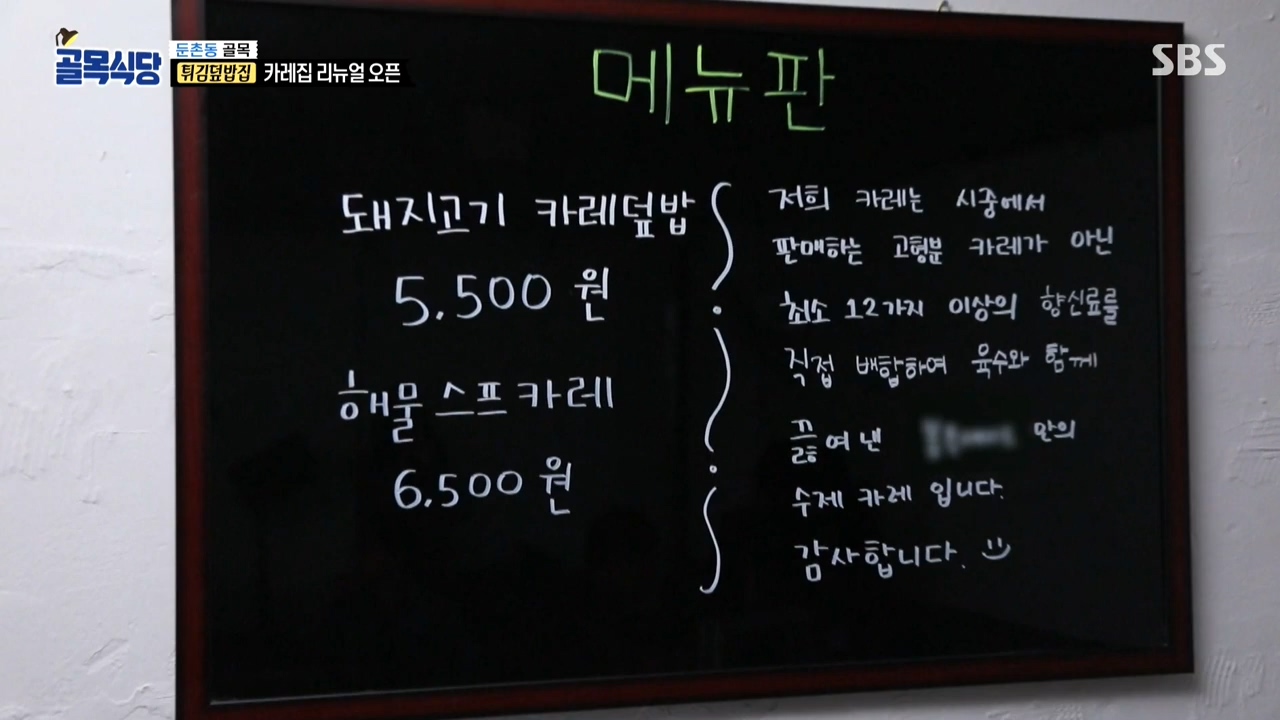 골목식당
둔촌동 골목
튀김덮밥집 카레집 리뉴얼 오픈
SBS
메뉴판
돼지고기 카레덮밥
5.500 원
해물 스프카레
6.500 원
저희 카레는 시중에서
판매하는 고형분 카레가 아닌
최소 12가지 이상의 향신료를
직접 배합하여 육수와 함께
끓여낸 만의
수제 카레 입니다.
감사합니다.